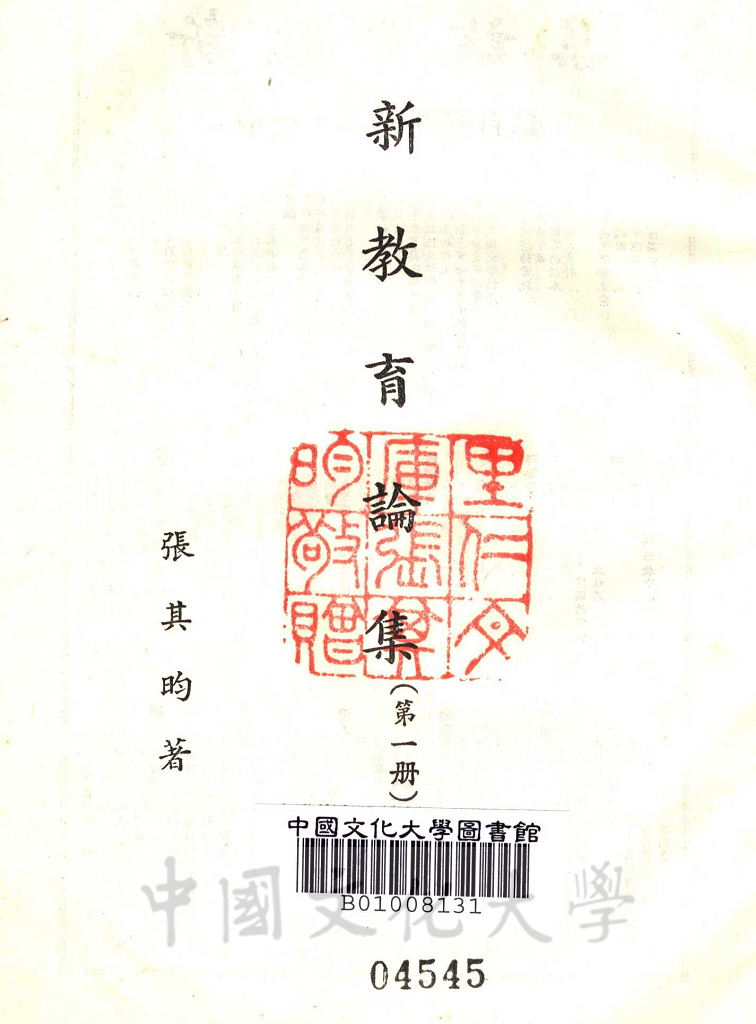 新教育論集(第一册)
張其昀著
里仁文
庫張其
昀敬贈
中國文化大學圖書館
B01008131
中國文化大學
04545